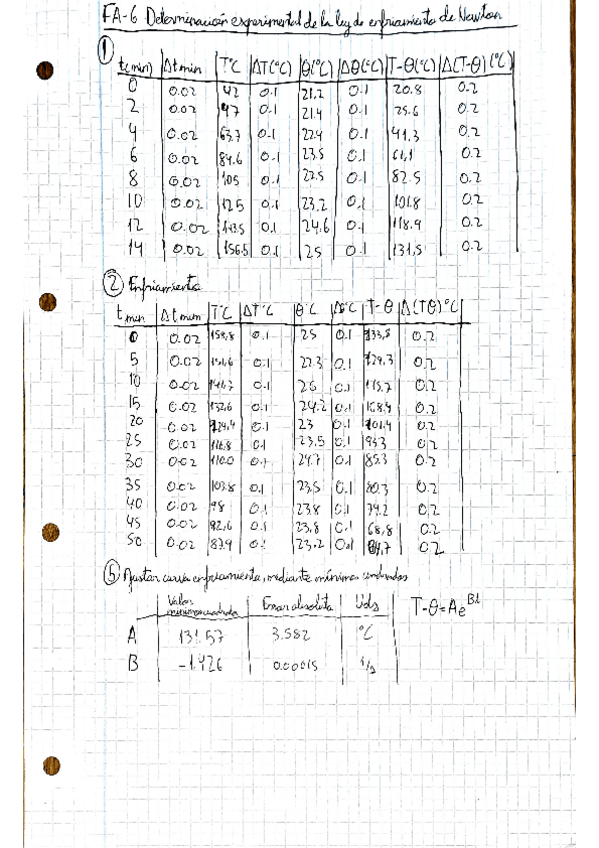 FA-6 Determinación experimental de la ley de enfriamiento de Newton
1
t(min) Δt min T°C ΔT(°C) θ(°C) Δθ(°C) T-θ(°C) Δ(T-θ)(°C)
0 0.02 42 0.1 21.2 0.1 20.8 0.2
2 0.02 47 0.1 21.4 0.1 25.6 0.2
4 0.02 63.7 0.1 22.4 0.1 41.3 0.2
6 0.02 84.6 0.1 23.5 0.1 61,1 0.2
8 0.02 105 0.1 22.5 0.1 82.5 0.2
10 0.02 125 0.1 23.2 0.1 101.8 0.2
12 0.02 143.5 0.1 24,6 0.1 118.9 0.2
14 0.02 156.5 0.1 25 0.1 131,5 0.2
2 Enfriamiento
t min Δt min T°C ΔT°C θ°C Δθ°C T-θ Δ(Tθ)°C
0 0.02 158,8 0.1 25 0.1 133,8 0.2
5 0.02 151,6 0.1 22.3 0.1 129,3 0.2
10 0.02 141,7 0.1 26 0.1 115,7 0.2
15 0.02 132,6 0.1 24.2 0.1 108,4 0.2
20 0.02 124,4 0.1 23 0.1 101,4 0.2
25 0.02 116,8 0.1 23.5 0.1 93,3 0.2
30 0.02 110.0 0.1 24.7 0.1 85.3 0.2
35 0.02 103.8 0.1 23,5 0.1 80.3 0.2
40 0.02 98 0.1 23.8 0.1 74.2 0.2
45 0.02 92,6 0.1 23,8 0.1 68,8 0.2
50 0.02 87.9 0.1 23.2 0.1 64,7 0.2
5 Ajustar curva enfriamiento, mediante mínimos cuadrados
Valor minimocuadrado Error absoluto Uds T-θ=Ae^Bt
A 131.57 3.582 °C
B -1.426 0.00015 1/s